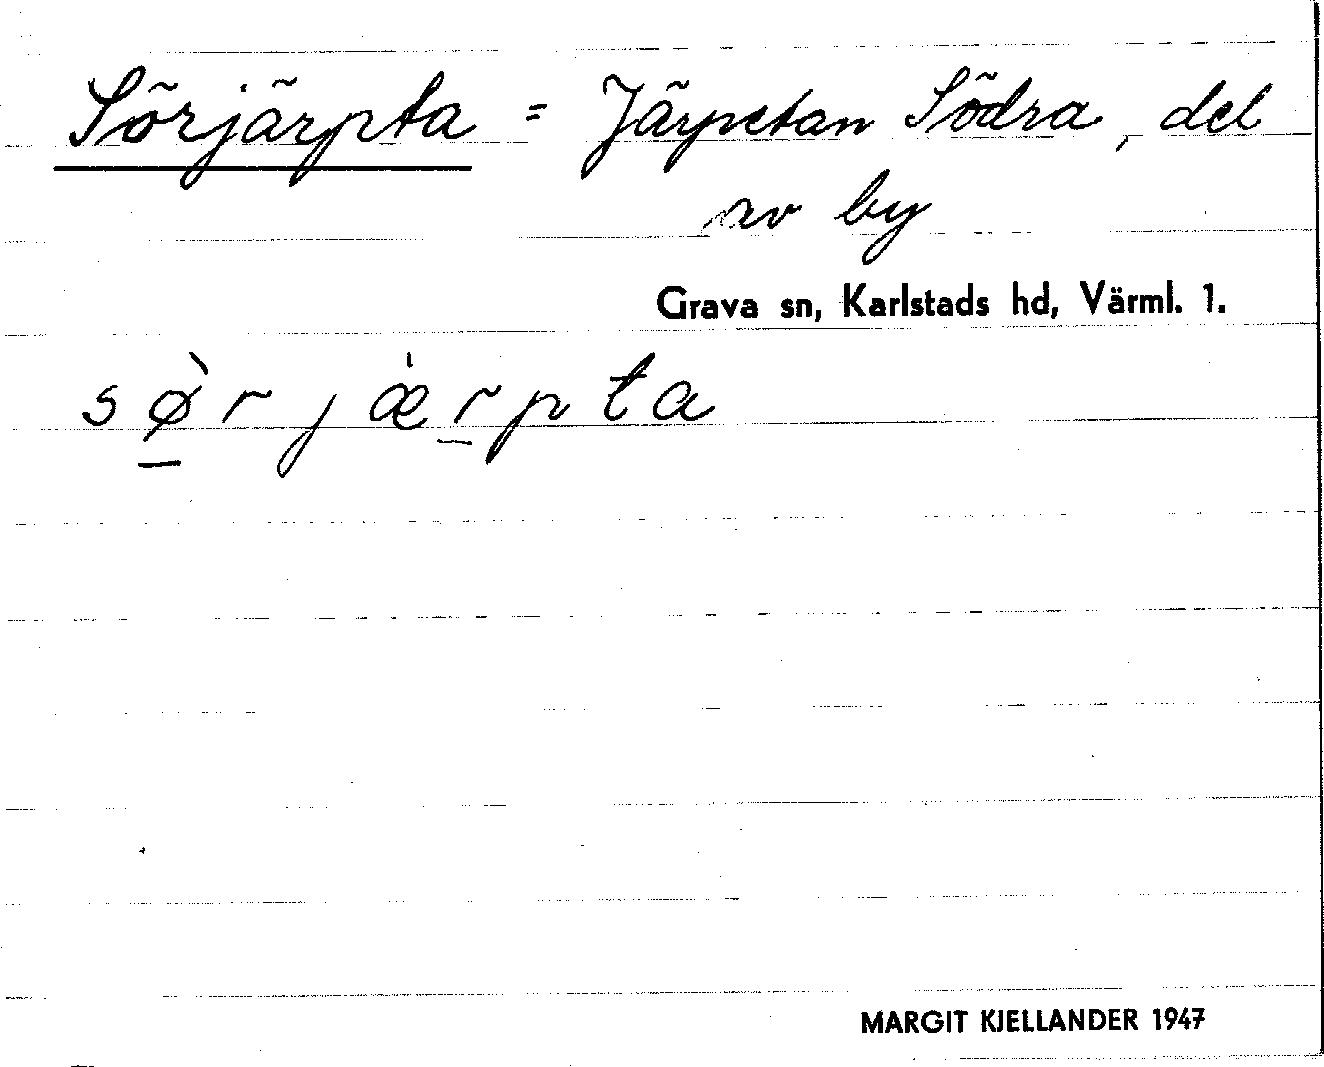 Sörjärpta = Järpetan Södra, del
av by
Grava sn, Karlstads hd, Värml. 1.
sø̀rjæ̇rpta
MARGIT KJELLANDER 1947